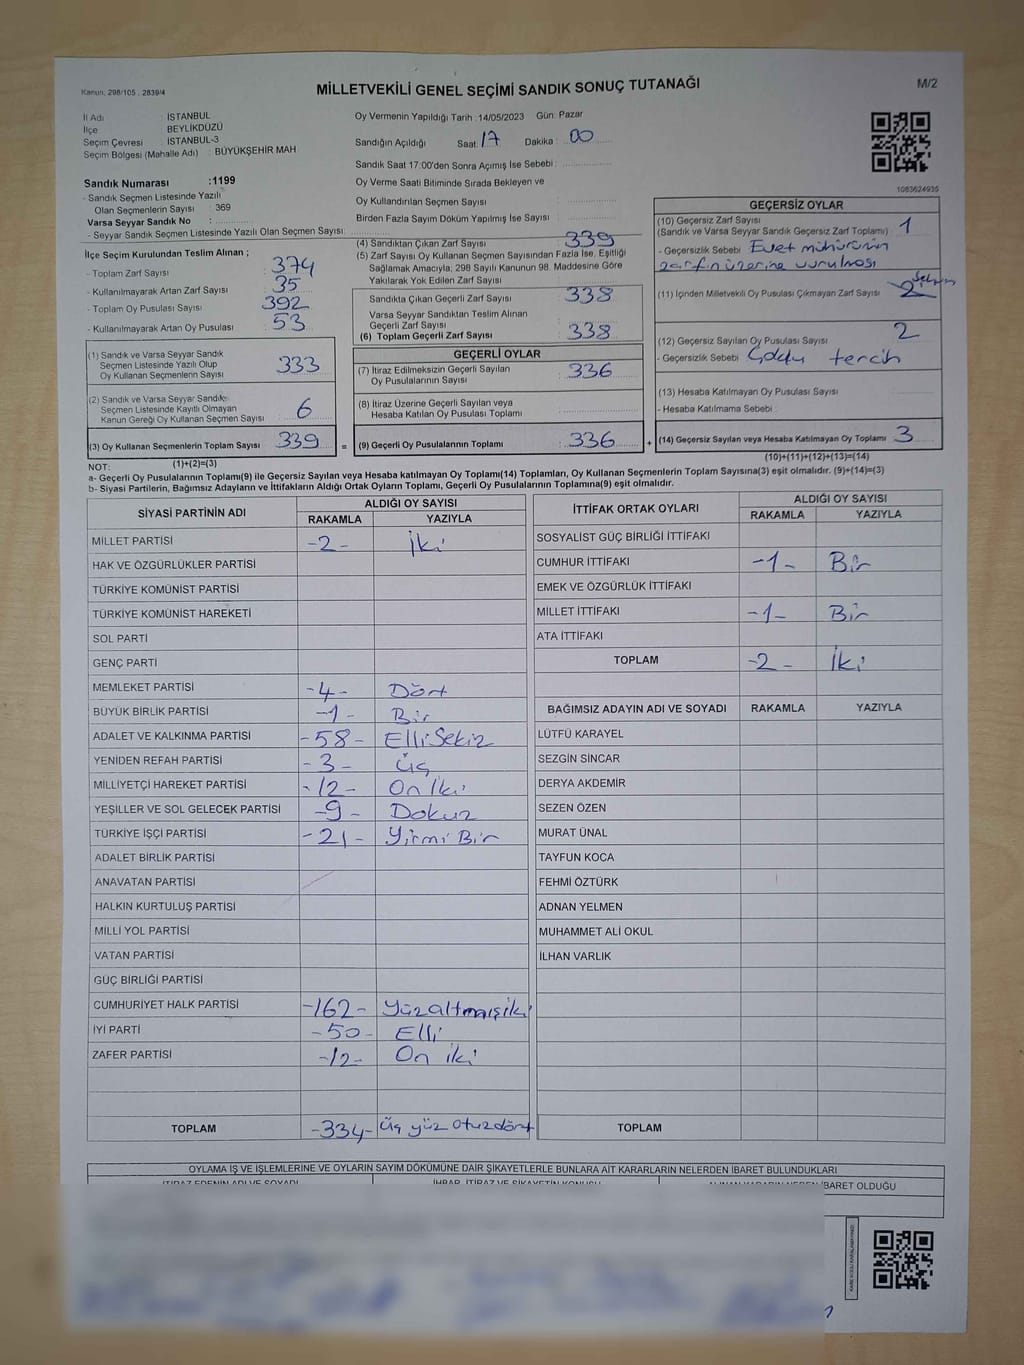 Kanun, 298/105 , 2839/4
MİLLETVEKİLİ GENEL SEÇİMİ SANDIK SONUÇ TUTANAĞI
M/2
İl Adı : İSTANBUL
İlçe : BEYLİKDÜZÜ
Seçim Çevresi : İSTANBUL-3
Seçim Bölgesi (Mahalle Adı) : BÜYÜKŞEHİR MAH
Oy Vermenin Yapıldığı Tarih : 14/05/2023 Gün: Pazar
Sandığın Açıldığı Saat: 17 Dakika : 00
Sandık Saat 17:00'den Sonra Açımış İse Sebebi :
Sandık Numarası :1199
- Sandık Seçmen Listesinde Yazılı
Olan Seçmenlerin Sayısı : 369
Varsa Seyyar Sandık No :
- Seyyar Sandık Seçmen Listesinde Yazılı Olan Seçmen Sayısı:
Oy Verme Saati Bitiminde Sırada Bekleyen ve
Oy Kullandırılan Seçmen Sayısı :
Birden Fazla Sayım Döküm Yapılmış İse Sayısı :
1083624935
İlçe Seçim Kurulundan Teslim Alınan ;
- Toplam Zarf Sayısı : 374
- Kullanılmayarak Artan Zarf Sayısı : 35
- Toplam Oy Pusulası Sayısı : 392
- Kullanılmayarak Artan Oy Pusulası : 53
(1) Sandık ve Varsa Seyyar Sandık
Seçmen Listesinde Yazılı Olup
Oy Kullanan Seçmenlerin Sayısı : 333
(2) Sandık ve Varsa Seyyar Sandık
Seçmen Listesinde Kayıtlı Olmayan
Kanun Gereği Oy Kullanan Seçmen Sayısı : 6
(3) Oy Kullanan Seçmenlerin Toplam Sayısı : 339 =
(1)+(2)=(3)
(4) Sandıktan Çıkan Zarf Sayısı : 339
(5) Zarf Sayısı Oy Kullanan Seçmen Sayısından Fazla İse, Eşitliği
Sağlamak Amacıyla, 298 Sayılı Kanunun 98. Maddesine Göre
Yakılarak Yok Edilen Zarf Sayısı :
Sandıkta Çıkan Geçerli Zarf Sayısı : 338
Varsa Seyyar Sandıktan Teslim Alınan
Geçerli Zarf Sayısı :
(6) Toplam Geçerli Zarf Sayısı : 338
GEÇERLİ OYLAR
(7) İtiraz Edilmeksizin Geçerli Sayılan
Oy Pusulalarının Sayısı : 336
(8) İtiraz Üzerine Geçerli Sayılan veya
Hesaba Katılan Oy Pusulası Toplamı :
(9) Geçerli Oy Pusulalarının Toplamı : 336 +
GEÇERSİZ OYLAR
(10) Geçersiz Zarf Sayısı
(Sandık ve Varsa Seyyar Sandık Geçersiz Zarf Toplamı) : 1
- Geçersizlik Sebebi : Evet mühürünün
zarfın üzerine vurulması
(11) İçinden Milletvekili Oy Pusulası Çıkmayan Zarf Sayısı : 2
(12) Geçersiz Sayılan Oy Pusulası Sayısı : 2
- Geçersizlik Sebebi : Çoklu tercih
(13) Hesaba Katılmayan Oy Pusulası Sayısı :
- Hesaba Katılmama Sebebi :
(14) Geçersiz Sayılan veya Hesaba Katılmayan Oy Toplamı : 3
(10)+(11)+(12)+(13)=(14)
NOT:
a- Geçerli Oy Pusulalarının Toplamı(9) ile Geçersiz Sayılan veya Hesaba katılmayan Oy Toplamı(14) Toplamları, Oy Kullanan Seçmenlerin Toplam Sayısına(3) eşit olmalıdır. (9)+(14)=(3)
b- Siyasi Partilerin, Bağımsız Adayların ve İttifakların Aldığı Ortak Oyların Toplamı, Geçerli Oy Pusulalarının Toplamına(9) eşit olmalıdır.
SİYASİ PARTİNİN ADI ALDIĞI OY SAYISI
RAKAMLA YAZIYLA
MİLLET PARTİSİ -2- İki
HAK VE ÖZGÜRLÜKLER PARTİSİ
TÜRKİYE KOMÜNİST PARTİSİ
TÜRKİYE KOMÜNİST HAREKETİ
SOL PARTİ
GENÇ PARTİ
MEMLEKET PARTİSİ -4- Dört
BÜYÜK BİRLİK PARTİSİ -1- Bir
ADALET VE KALKINMA PARTİSİ -58- Elli Sekiz
YENİDEN REFAH PARTİSİ -3- Üç
MİLLİYETÇİ HAREKET PARTİSİ -12- On İki
YEŞİLLER VE SOL GELECEK PARTİSİ -9- Dokuz
TÜRKİYE İŞÇİ PARTİSİ -21- Yirmi Bir
ADALET BİRLİK PARTİSİ
ANAVATAN PARTİSİ
HALKIN KURTULUŞ PARTİSİ
MİLLİ YOL PARTİSİ
VATAN PARTİSİ
GÜÇ BİRLİĞİ PARTİSİ
CUMHURİYET HALK PARTİSİ -162- Yüzaltmışiki
İYİ PARTİ -50- Elli
ZAFER PARTİSİ -12- On iki
TOPLAM -334- Üç yüz otuzdört
İTTİFAK ORTAK OYLARI ALDIĞI OY SAYISI
RAKAMLA YAZIYLA
SOSYALİST GÜÇ BİRLİĞİ İTTİFAKI
CUMHUR İTTİFAKI -1- Bir
EMEK VE ÖZGÜRLÜK İTTİFAKI
MİLLET İTTİFAKI -1- Bir
ATA İTTİFAKI
TOPLAM -2- İki
BAĞIMSIZ ADAYIN ADI VE SOYADI RAKAMLA YAZIYLA
LÜTFÜ KARAYEL
SEZGİN SİNCAR
DERYA AKDEMİR
SEZEN ÖZEN
MURAT ÜNAL
TAYFUN KOCA
FEHMİ ÖZTÜRK
ADNAN YELMEN
MUHAMMET ALİ OKUL
İLHAN VARLIK
TOPLAM
OYLAMA İŞ VE İŞLEMLERİNE VE OYLARIN SAYIM DÖKÜMÜNE DAİR ŞİKAYETLERLE BUNLARA AİT KARARLARIN NELERDEN İBARET BULUNDUKLARI
İTİRAZ EDENİN ADI VE SOYADI İHBAR, İTİRAZ VE ŞİKAYETİN KONUSU ALINAN KARARIN NEDEN İBARET OLDUĞU